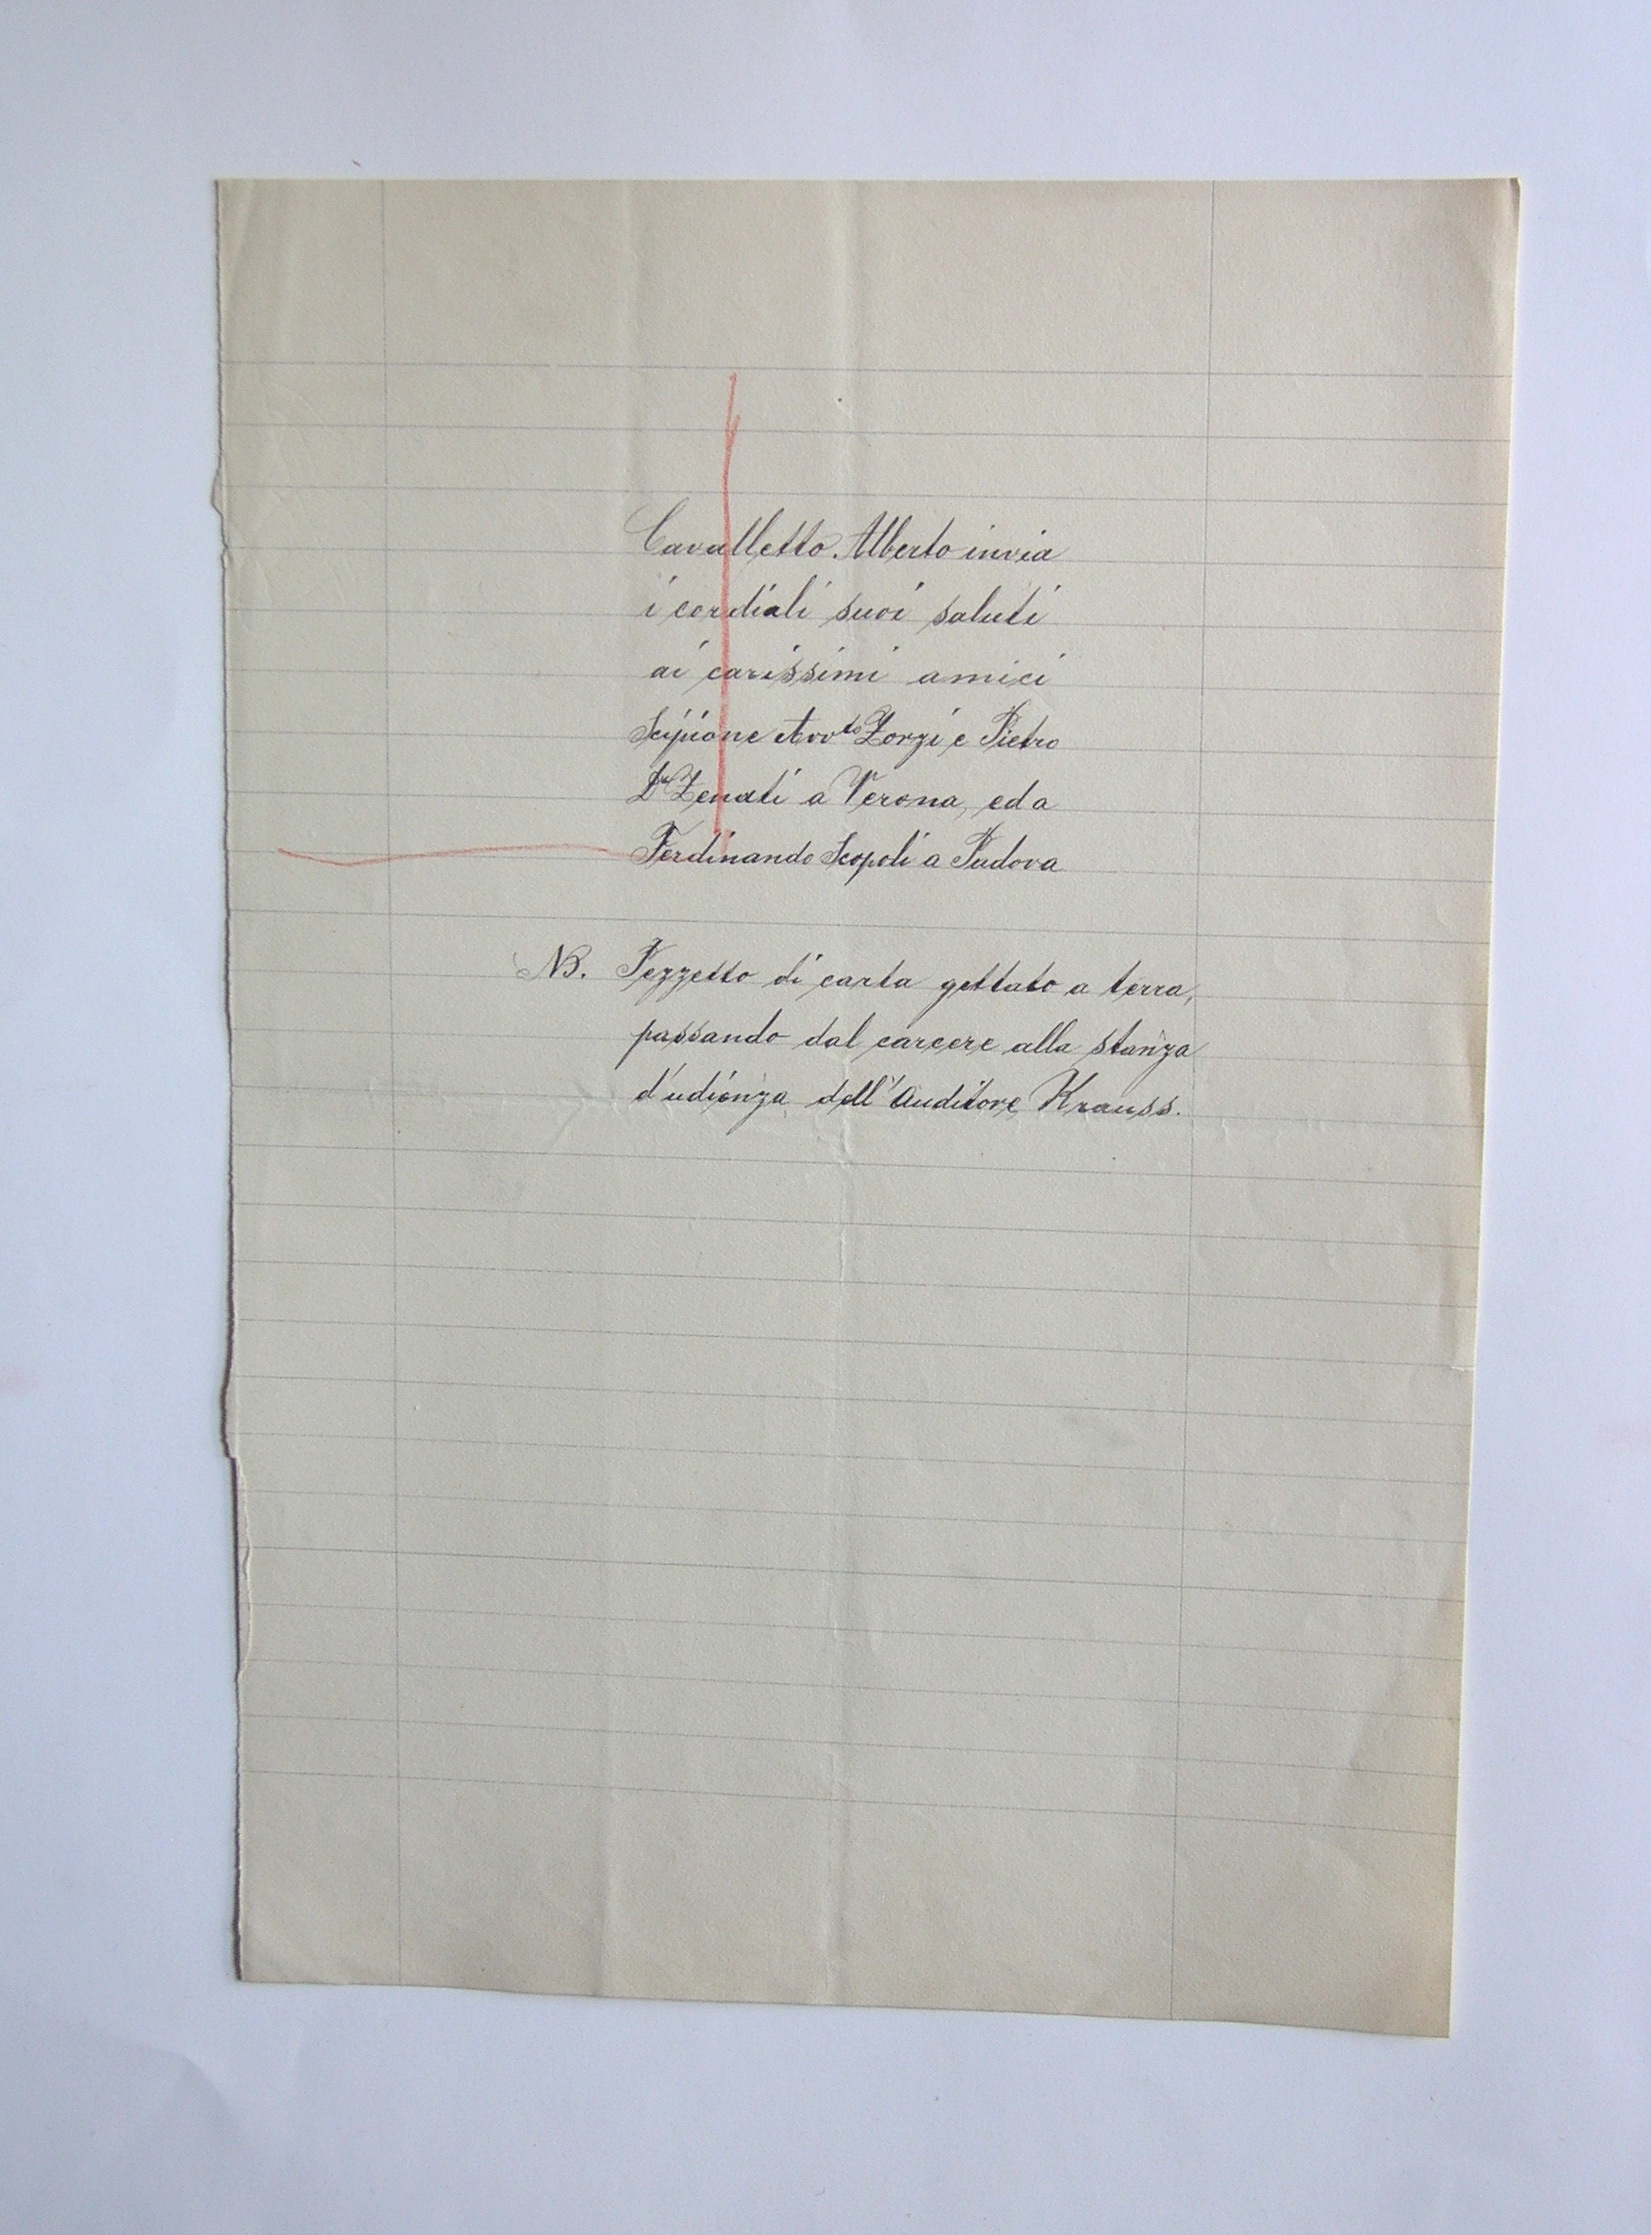 Cavalletto Alberto invia
i cordiali suoi saluti
ai carissimi amici
Scipione Avv.to Zorzi e Pietro
Dr Zenati a Verona, ed a
Ferdinando Scopoli a Padova
NB. Pezzetto di carta gettato a terra,
passando dal carcere alla stanza
d'udienza dell'Auditore Krauss.